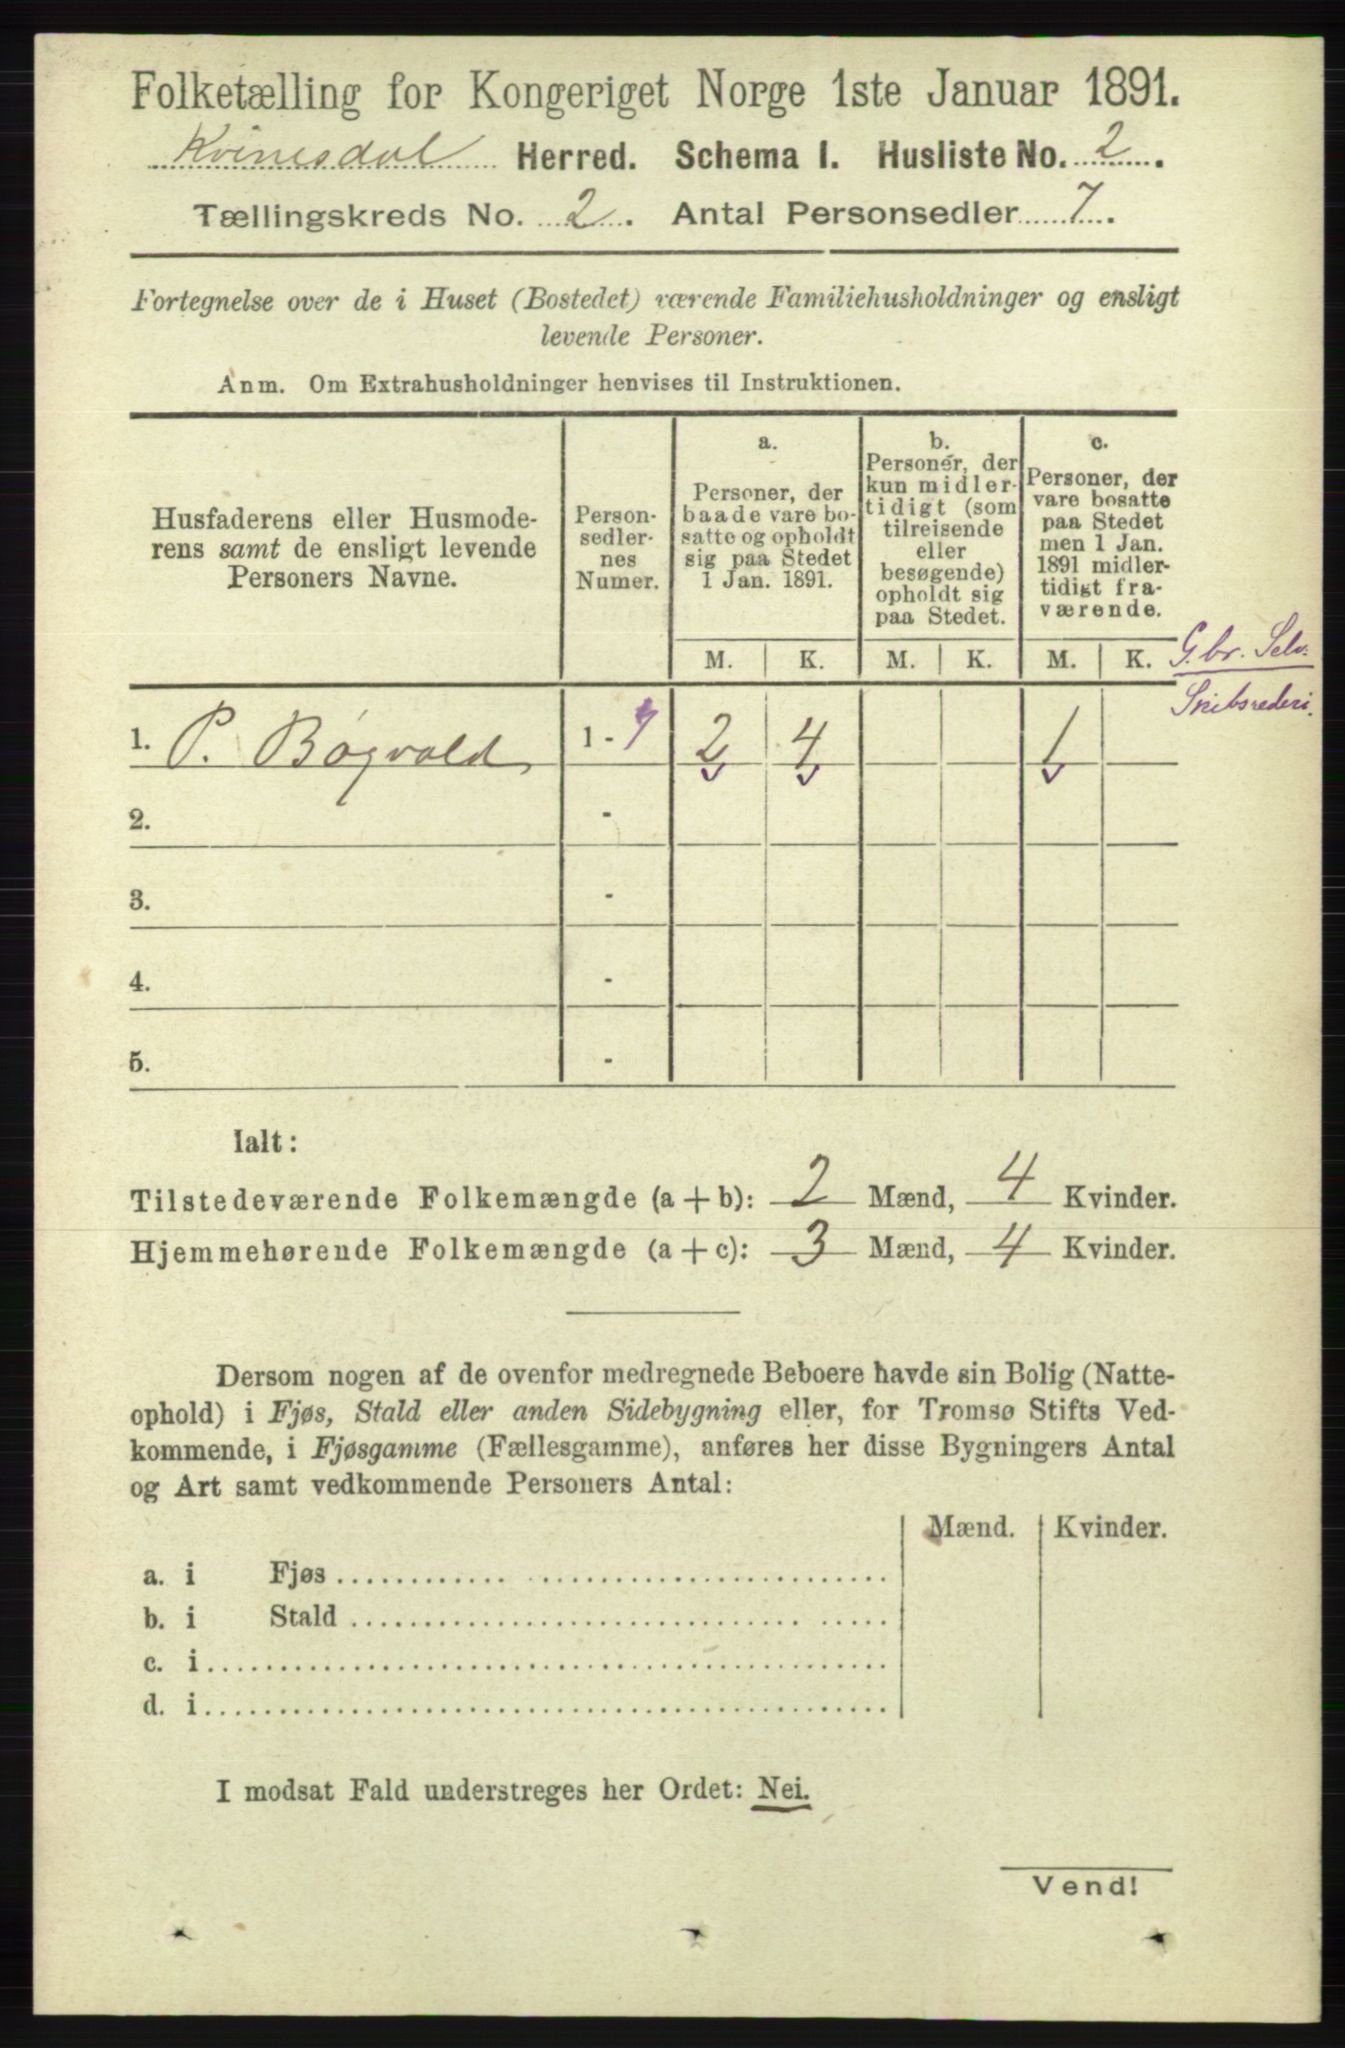 Folketælling for Kongeriget Norge 1ste Januar 1891.
Kvinesdal Herred. Schema I. Husliste No. 2.
Tællingskreds No. 2. Antal Personsedler 7.
Fortegnelse over de i Huset (Bostedet) værende Familiehusholdninger og ensligt
levende Personer.
Anm. Om Extrahusholdninger henvises til Instruktionen.
Husfaderens eller Husmode-
rens samt de ensligt levende
Personers Navne.
Person-
sedler-
nes
Numer.
a.
Personer, der
baade vare bo-
satte og opholdt
sig paa Stedet
1 Jan. 1891.
b.
Personer, der
kun midler-
tidigt (som
tilreisende
eller
besøgende)
opholdt sig
paa Stedet.
c.
Personer, der
vare bosatte
paa Stedet
men 1 Jan.
1891 midler-
tidigt fra-
værende.
M. K. M. K. M. K.
G.br. Selv.
Skibsrederi.
1. P. Bøgvald 1 - 7 2 4 1
2. -
3. -
4. -
5. -
Ialt:
Tilstedeværende Folkemængde (a + b): 2 Mænd, 4 Kvinder.
Hjemmehørende Folkemængde (a + c): 3 Mænd, 4 Kvinder.
Dersom nogen af de ovenfor medregnede Beboere havde sin Bolig (Natte-
ophold) i Fjøs, Stald eller anden Sidebygning eller, for Tromsø Stifts Ved-
kommende, i Fjøsgamme (Fællesgamme), anføres her disse Bygningers Antal
og Art samt vedkommende Personers Antal:
Mænd. Kvinder.
a. i Fjøs
b. i Stald
c. i
d. i
I modsat Fald understreges her Ordet: Nei.
Vend!